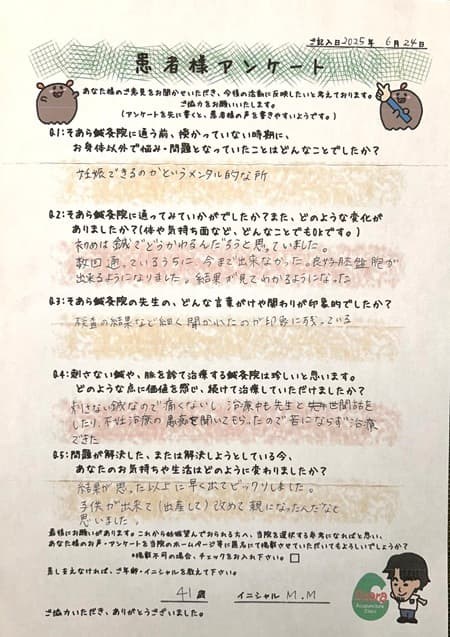 ご記入日2025年 6月24日
患者様アンケート
あなた様のご意見をお聞かせいただき、今後の活動に反映したいと考えております。
ご協力をお願いいたします。
(アンケートを先に書くと、患者様の声を書きやすいようです。)
Q.1:そあら鍼灸院に通う前、授かっていない時期に、
お身体以外で悩み・問題となっていたことはどんなことでしたか?
妊娠できるのかというメンタル的な所
Q.2:そあら鍼灸院に通ってみていかがでしたか?また、どのような変化が
ありましたか?(体や気持ち面など、どんなことでもOKです。)
初めは鍼でどうかわるんだろうと思っていました。
数回通っているうちに、今まで出来なかった。良好胚盤胞が
出来るようになりました。結果が見てわかるようになった
Q.3:そあら鍼灸院の先生の、どんな言葉がけや関わりが印象的でしたか?
検査の結果など細く聞かれたのが印象に残っている
Q.4:刺さない鍼や、脈を診て治療する鍼灸院は珍しいと思います。
どのような点に価値を感じ、続けて治療していただけましたか?
刺さない鍼なので痛くないし、治療中も先生と世間話を
したり、不妊治療の愚痴を聞いてもらったので苦にならず治療
できた
Q.5:問題が解決した、または解決しようとしている今、
あなたのお気持ちや生活はどのように変わりましたか?
結果が思った以上に早く出てビックリしました。
子供が出来て(出産して)改めて親になったんだなと
思いました。
最後にお願いがあります。これから妊娠望んでおられる方へ、当院を選択する参考になればと思い、
あなた様のお声・アンケートを当院のホームページ等に匿名にて掲載させていただいてもよろしいでしょうか?
※掲載不可の場合、チェックをお入れ下さい。□
差し支えなければ、ご年齢・イニシャルを教えて下さい。
41歳 イニシャル M.M
ご協力いただき、ありがとうございました。
Acupuncture
Clinic